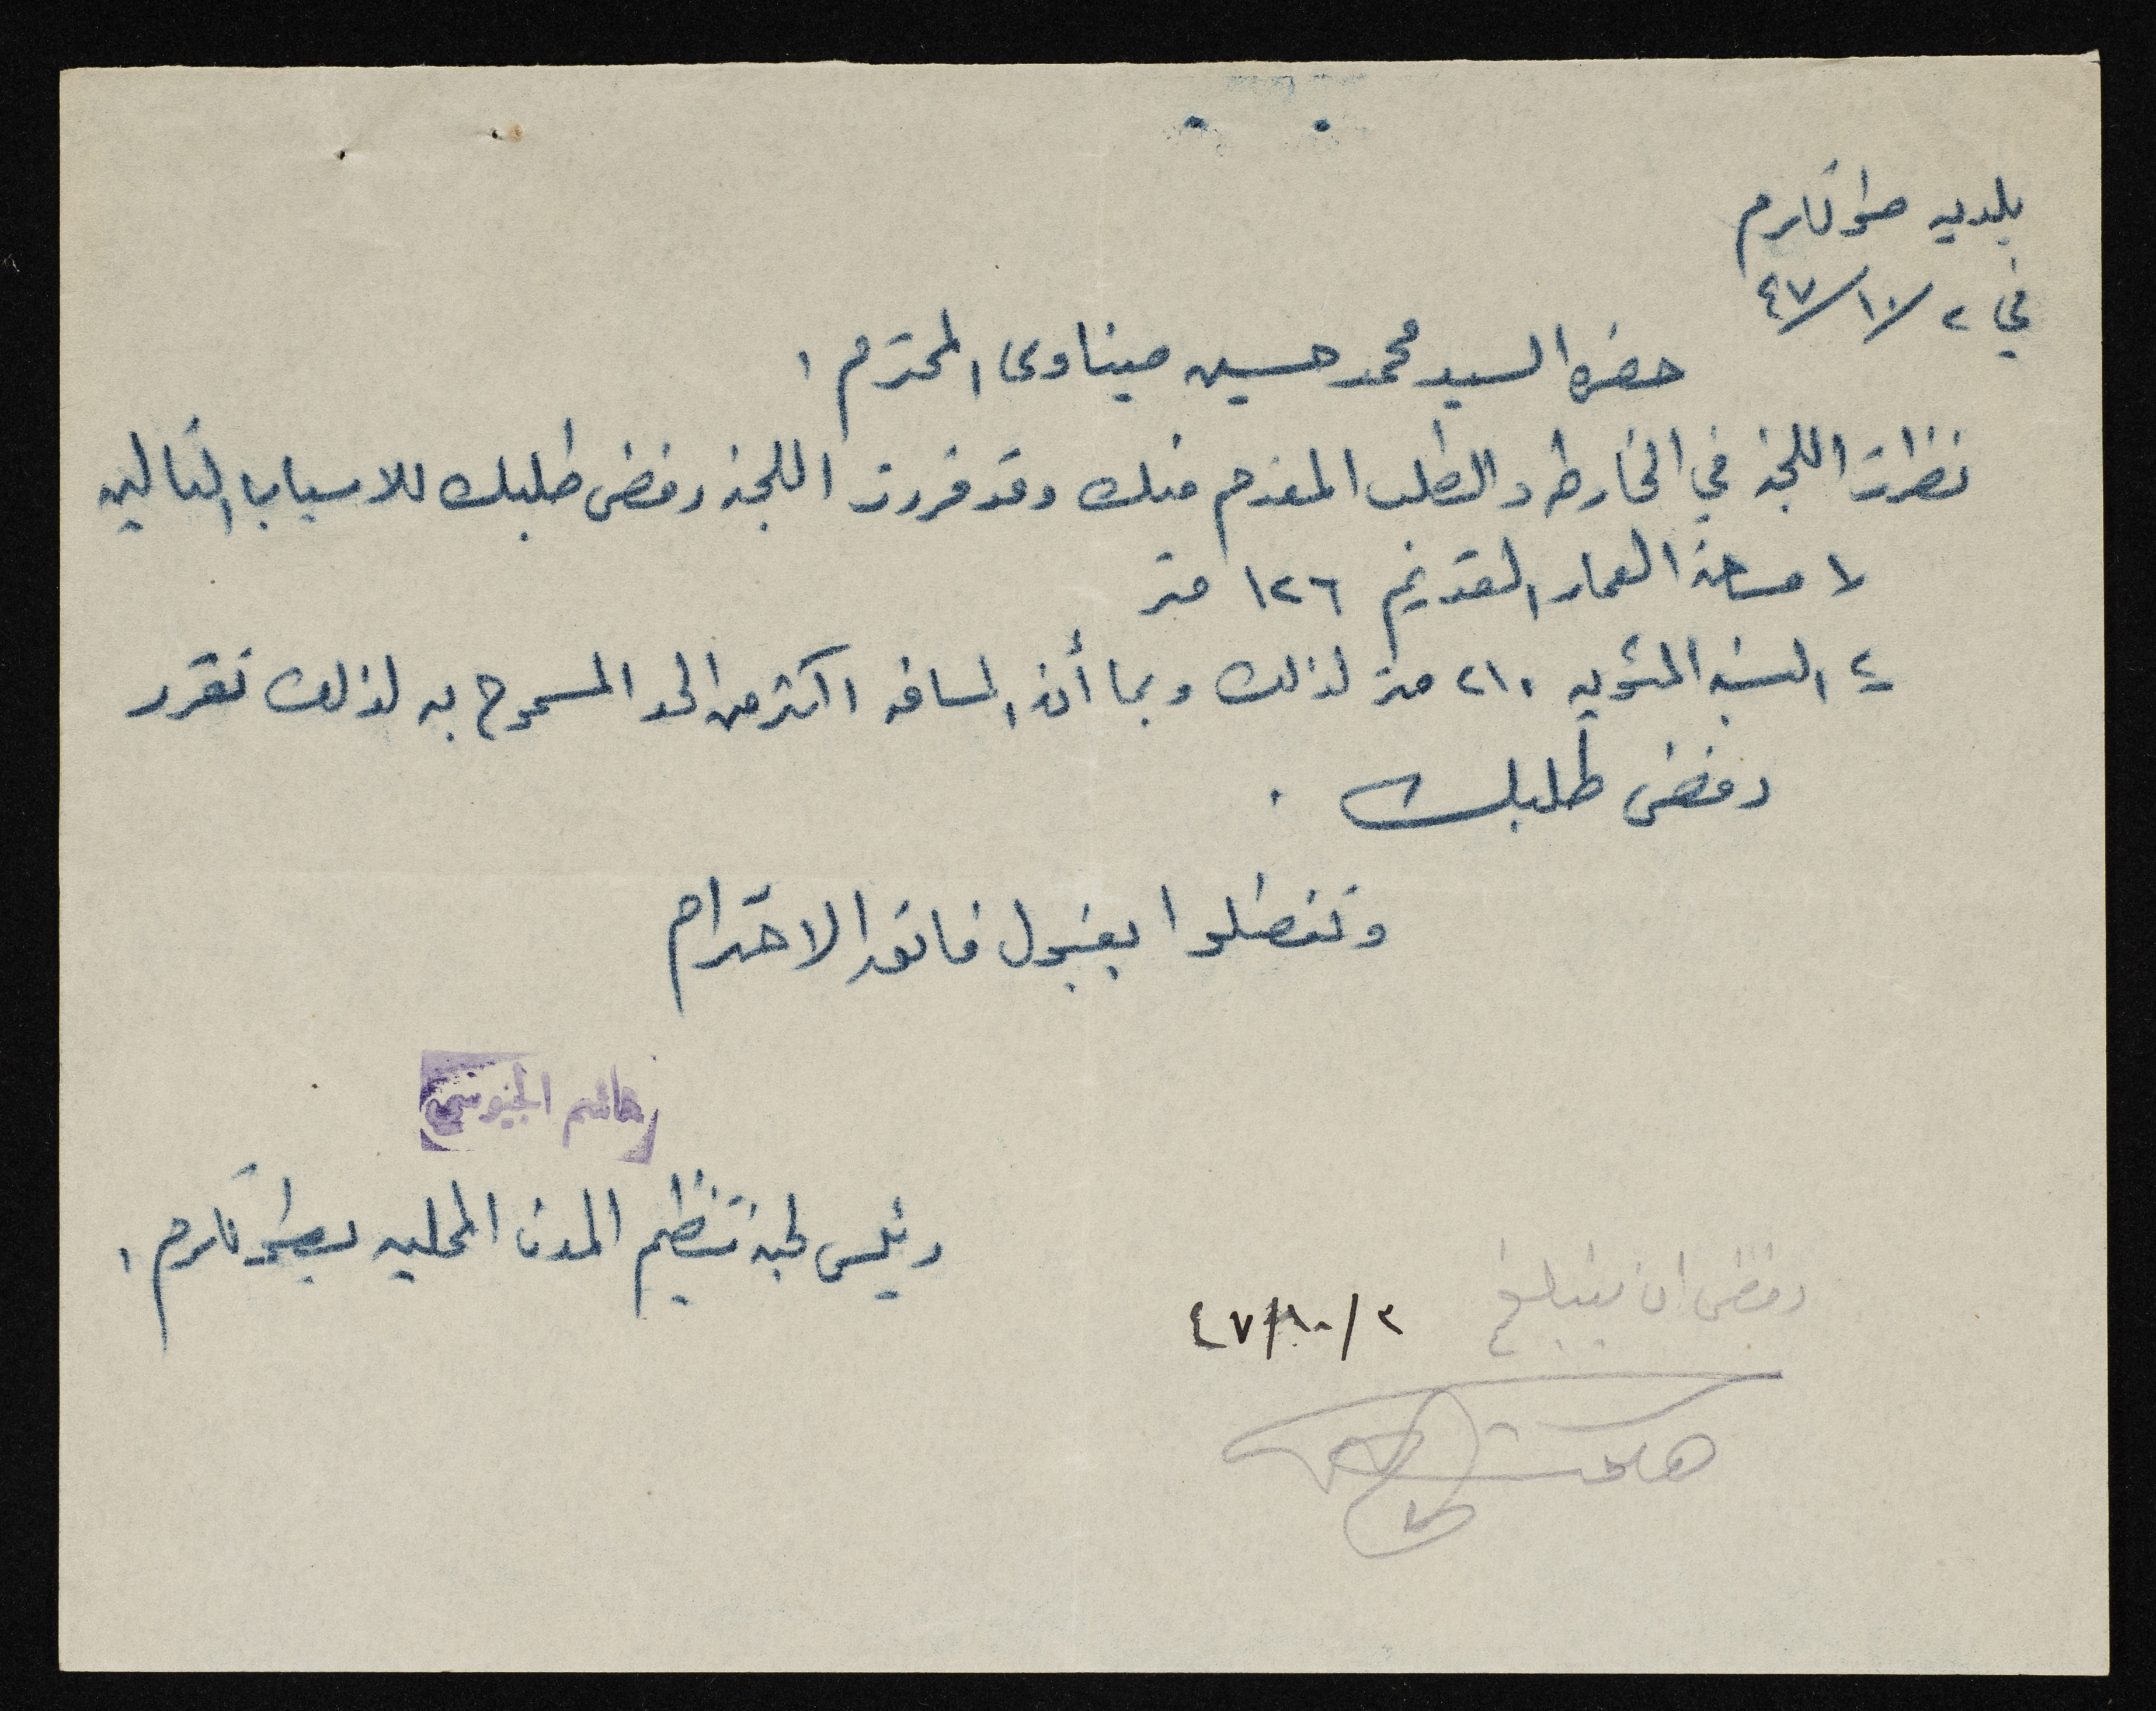 بلديه طولكرم
في ٢/١٠/٤٧
حضرة السيد محمد حسين ميناوى المحترم
نظرت اللجنة في الخارطه والطلب المقدم منك وقد قررت اللجنة رفض طلبك للاسباب التاليه
١ مساحة العمار القديم ١٢٦ متر
٢ النسبة المئويه ٢١٠ متر لذلك وبما أن المسافه اكثر من الحد المسموح به لذلك تقرر
رفض طلبك .
وتفضلوا بقبول فائق الاحترام
هاشم الجيوسي
رئيس لجنة تنظيم المدن المحليه بطولكرم
رفض ان يتبلغ
٢/١٠/٤٧